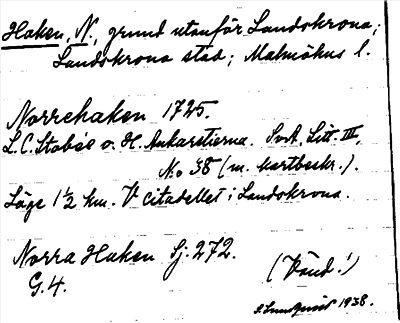 Haken, N., grund utanför Landskrona;
Landskrona stad; Malmöhus l.
Norrehaken 1725.
L.C. Stobée o. H. Ankarstierna. SvA, Litt. III,
No 38 (m. kartbeskr.).
Läge 1½ km. V citadellet i Landskrona.
Norra Haken Sj. 272.
G. 4.
(Vänd!)
1938.